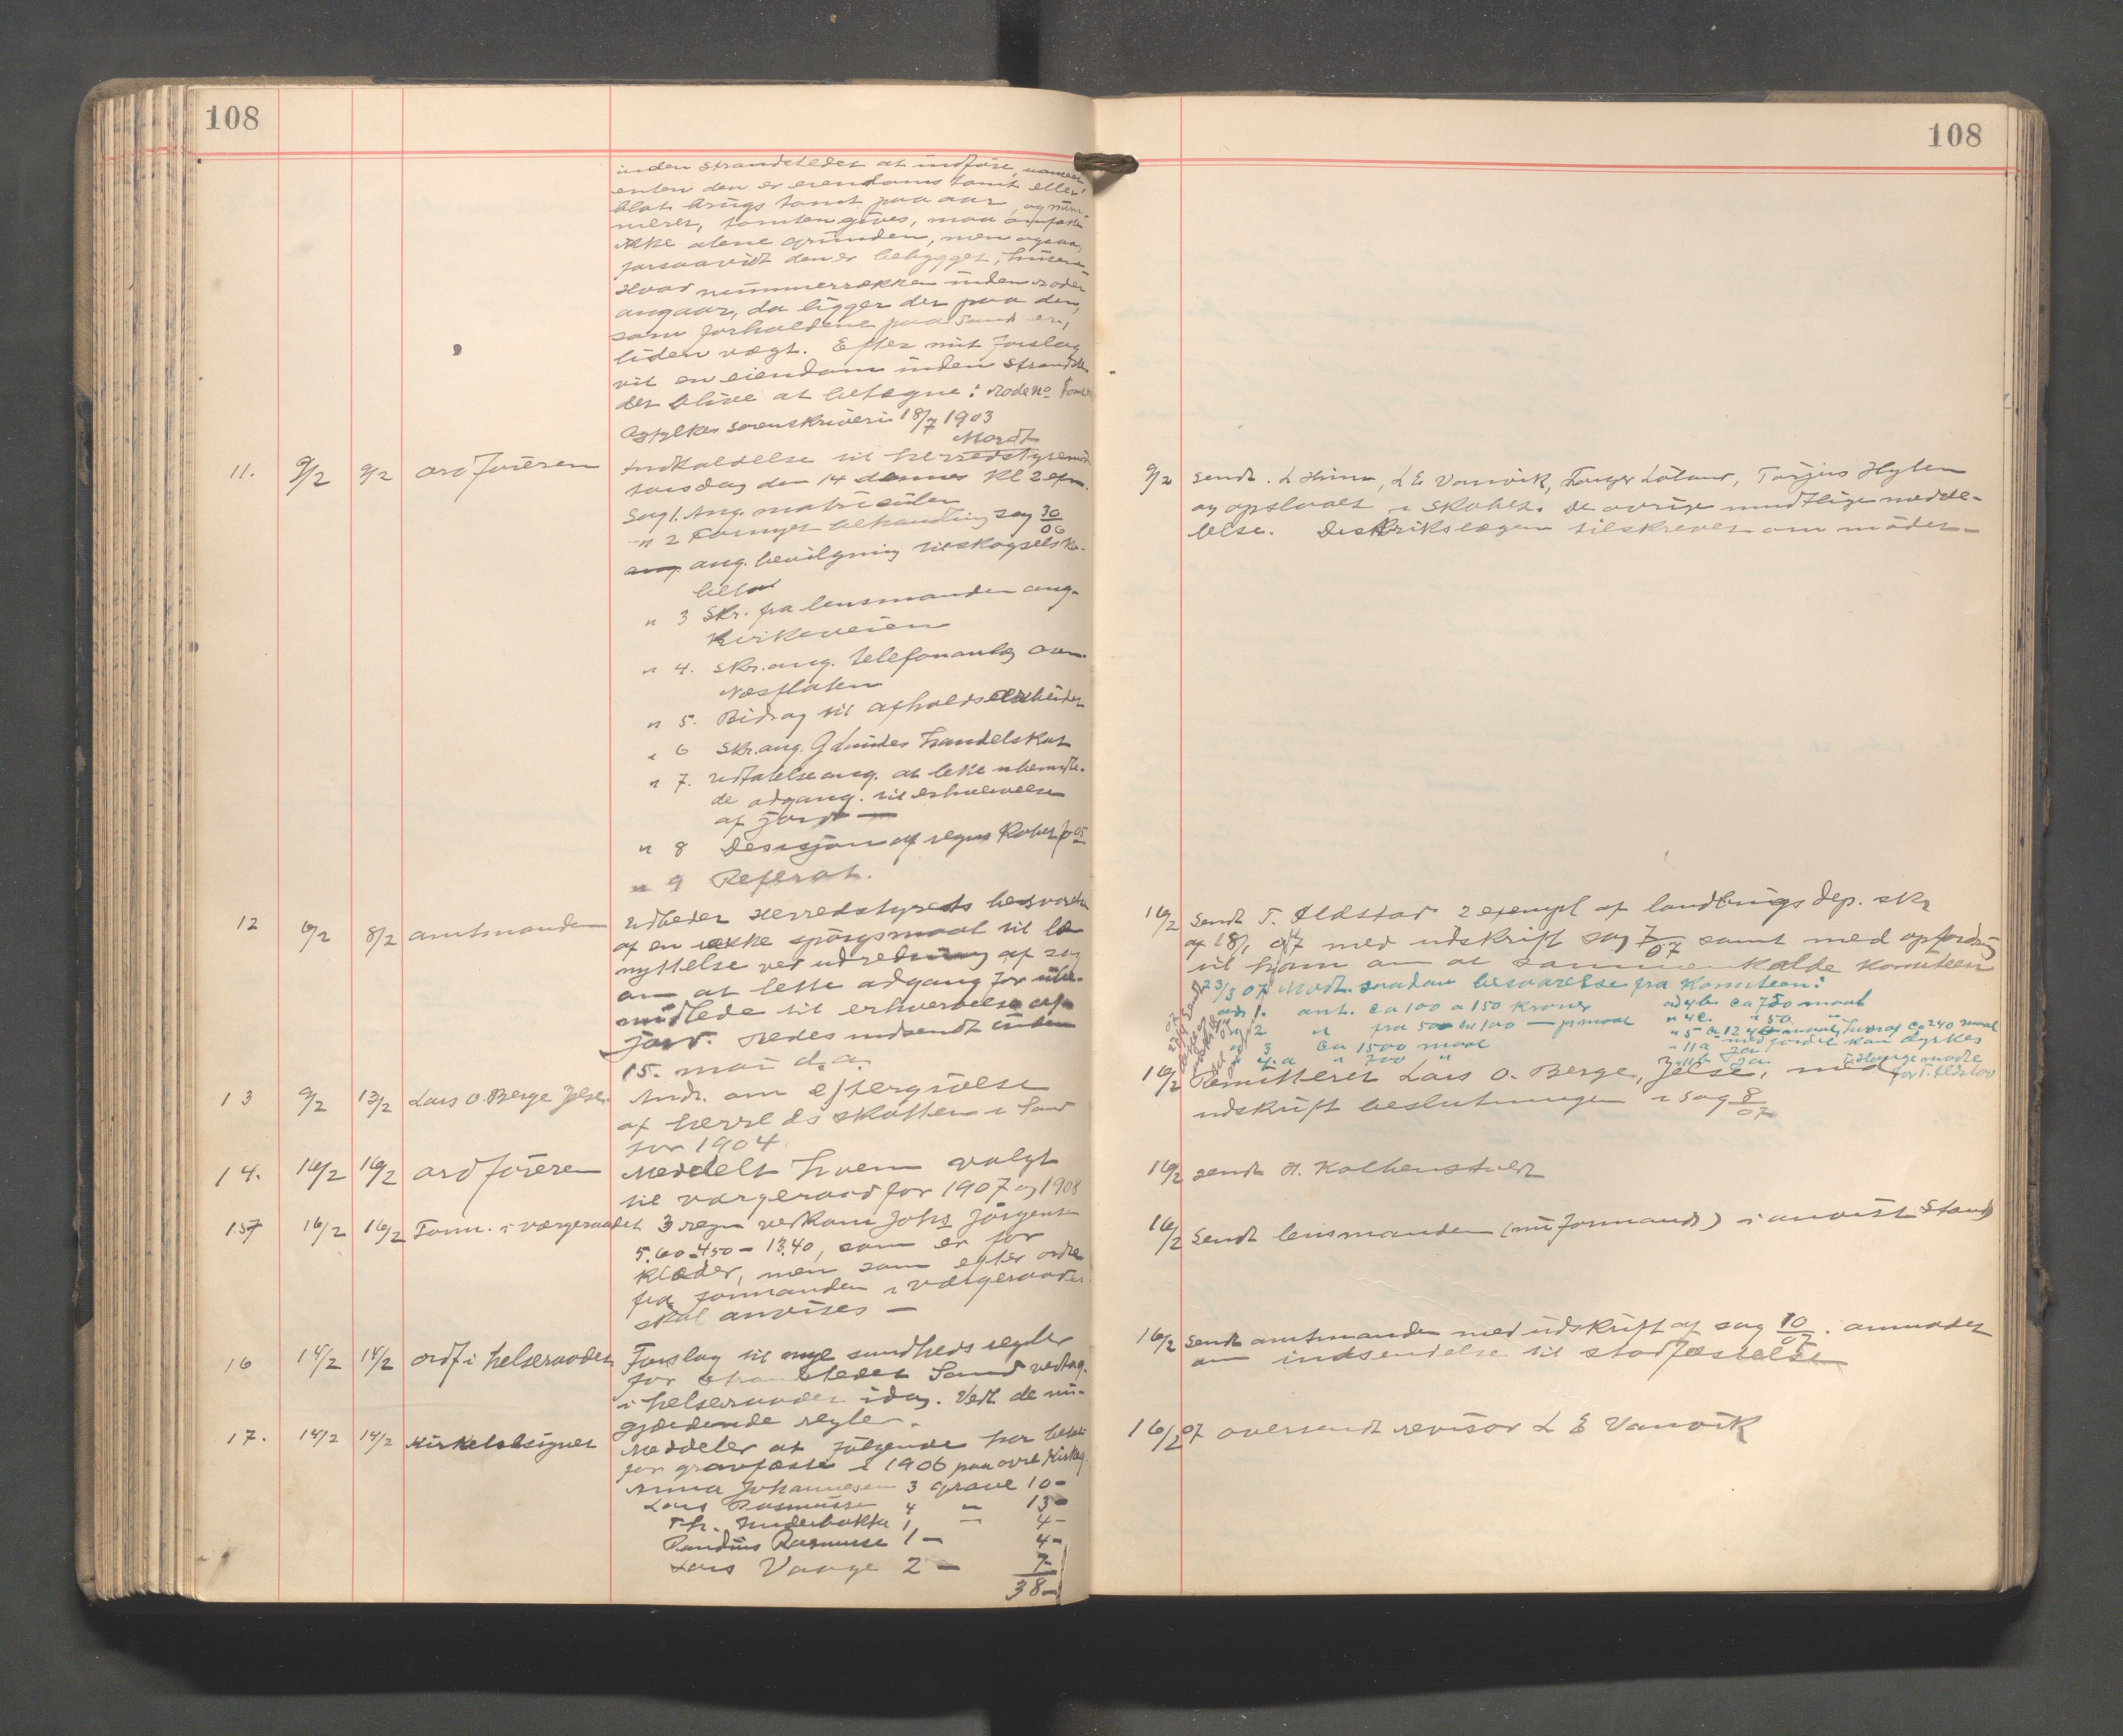 108
inden strandstedet at indføre,
enten den er eiendoms tomt eller
blot brugs tomt paa aar, og
merer, tomten gives, maa omfatte
ikke alene grunden, men ogsaa,
forsaavidt den er bebygget, husene.
Hvad nummerrækken inden roden
angaar, da ligger der paa den,
som forholdene paa Sand er,
liden vægt. Efter mit forslag
vil en eiendom inden strandste
det blive at betegne: Rode No
Ryfylke sorenskriveri 18/7 1903
Mordt
11. 9/2 9/2 ordføreren Indkaldelse til herredstyremøde
torsdag den 14 dennes Kl 2 efm.
Sag 1. Ang. matriculen
" 2 Fornyet behandling sag 30/06
ang. ang. bevilgning til skogselska-
bet
" 3 Skr. fra lensmanden ang.
Kirkeveien
" 4. Skr. ang. telefonanlæg
Næsflaten
" 5. Bidrag til afholdsarbeidet
" 6 Skr. ang. G Lundes handelskat
" 7. Udtalelse ang. at lette ubemidle-
de adgang. til erhvervelse
af jord —
" 8 Desisjon af regns Kobes for 05
" 9 Referat.
12 6/2 8/2 amtmanden Udbeder Herredstyrets besvarelse
af en række spørgsmaal til be
nyttelse ved udredning af sag
om at lette adgang for ube-
midlede til erhvervelse af
jord. Sedes indsendt inden
15. mai d.a.
13 9/2 13/2 Lars O. Berge Jelse. Andr. om eftergivelse
af herredsskatten i Sand
for 1904
14. 16/2 16/2 ordføreren Meddelt hvem valgt
til værgeraad for 1907 og 1908
15 16/2 16/2 Form. i værgeraadet 3 regn vedkom Johs Jørgensen
5.60 - 4.50 - 13.40, som er for
klæder, men som efter ordre
fra formanden i værgeraadet
skal anvises —
16 14/2 14/2 ordf i helseraadet Forslag til nye sundheds regler
for strandstedet Sand vedtag.
i helseraadet idag. Vedl de nu-
gjældende regler.
17. 14/2 14/2 Kirketilsynet Meddeler at følgende har betalt
for gravfæste i 1906 paa Kirkeg.
Anna Johannesen 3 grave 10 -
Lars Rasmussen 4 — 13 -
Th. 1 — 4 -
Rasmussen 1 — 4 -
Lars Vange 2 — 7 -
38 -
108
9/2 Sendt. L Hiim, L E Vanvik, Torjus Hylen
og opslaaet i Skohet. De øvrige mundtlige medde-
lelse. Deskrikslægen tilskrevet om mødet —
16/2 Sendt T. Eldstad 2 exempl af landbrugs dep. skr
af 18/1 07 med udskrift sag 7/07 samt med opfordring
til ham om at sammenkalde Komiteen
23/3 07 Modt. saadan besvarelse fra Komiteen:
ad 1. ant. ca 100 a 150 kroner ad 4b ca 750 maal
" 2 " fra 50 til 100 — pr maal " 4c. " 50 "
" 3 ca 1500 maal " 5 ca 1240 maal, hvoraf ca 240 maal
" 4. a " 700 " " 11a med fordel kan dyrkes
" 11b Ja
16/2 Remitteret Lars O. Berge, Jelse, med for T. Eldstad
udskrift beslutningen i sag 8/07
16/2 sendt H. Kolbenstvedt
16/2 Sendt lensmanden (nu formand) i anvist Stand
16/2 Sendt amtmanden med udskrift af sag 10/07. anmodet
om indsendelse til stadfæstelse
16/2 07 oversendt revisor L E Vanvik